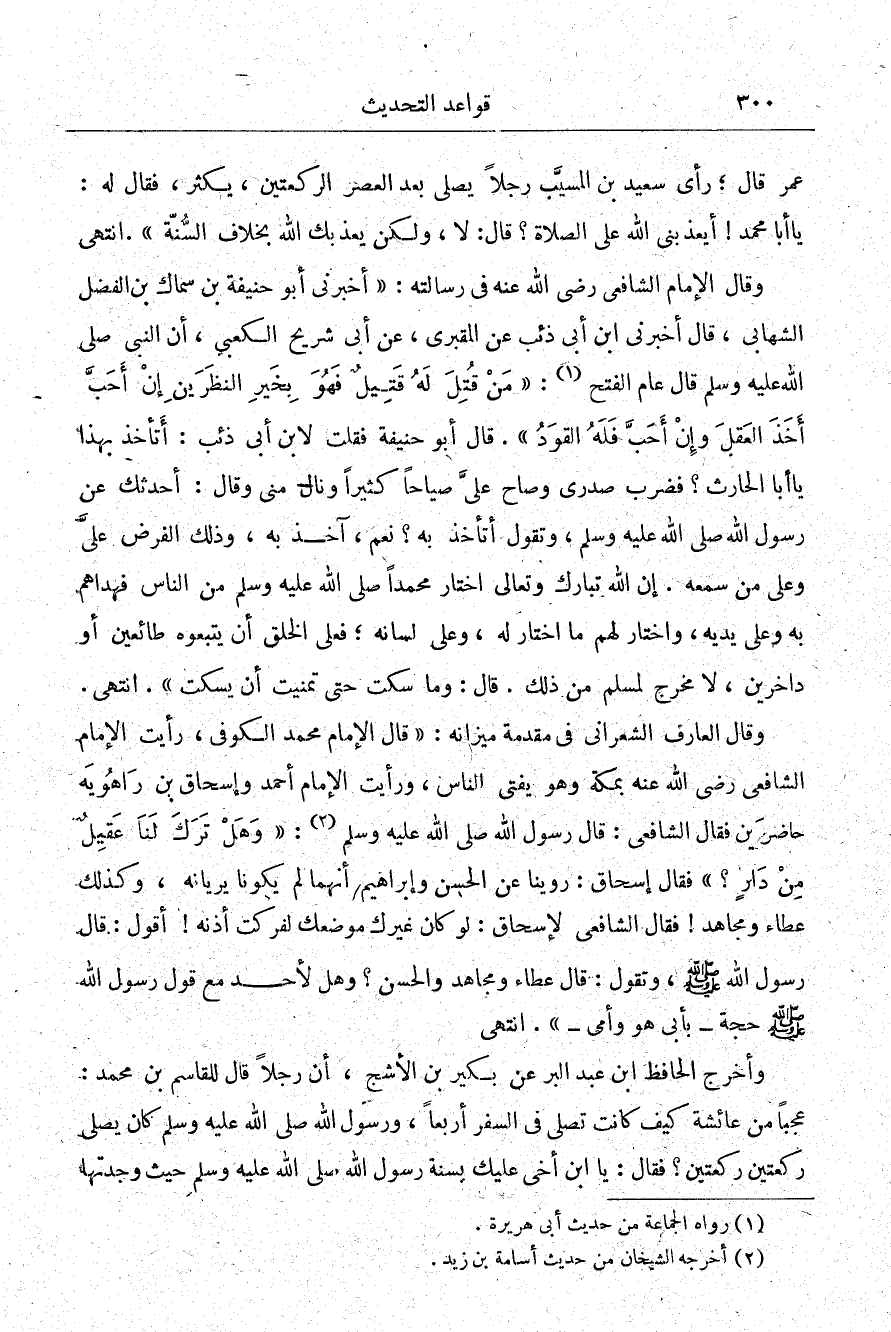 ٣٠٠ قواعد التحديث
عمر قال ؛ رأى سعيد بن المسيَّب رجلاً يصلى بعد العصر الركعتين ، يكثر ، فقال له :
ياأبا محمد ! أيعذبنى الله على الصلاة ؟ قال : لا ، ولكن يعذبك الله بخلاف السُّنّة » . انتهى
وقال الإمام الشافعى رضى الله عنه فى رسالته : « أخبرنى أبو حنيفة بن سماك بن الفضل
الشهابى ، قال أخبرنى ابن أبى ذئب عن المقبرى ، عن أبى شريح الكعبي ، أن النبى صلى
الله عليه وسلم قال عام الفتح (١) : « مَنْ قُتِلَ لَهُ قَتِيلٌ فَهُوَ بِخَيرِ النظرَين إنْ أَحَبَّ
أَخَذَ العَقلَ وإنْ أَحَبَّ فَلَهُ القوَدُ » . قال أبو حنيفة فقلت لابن أبى ذئب : أَتأخذ بهذا
ياأبا الحارث ؟ فضرب صدرى وصاح علىَّ صياحاً كثيراً ونال منى وقال : أحدثك عن
رسول الله صلى الله عليه وسلم ، وتقول أتأخذ به ؟ نعم ، آخذ به ، وذلك الفرض علىَّ
وعلى من سمعه . إن الله تبارك وتعالى اختار محمداً صلى الله عليه وسلم من الناس فهداهم
به وعلى يديه ، واختار لهم ما اختار له ، وعلى لسانه ؛ فعلى الخلق أن يتبعوه طائعين أو
داخرين ، لا مخرج لمسلم من ذلك . قال : وما سكت حتى تمنيت أن يسكت » . انتهى .
وقال العارف الشعرانى فى مقدمة ميزانه : « قال الإمام محمد الكوفى ، رأيت الإمام
الشافعى رضى الله عنه بمكة وهو يفتى الناس ، ورأيت الإمام أحمد وإسحاق بن رَاهُويَه
حاضرَين فقال الشافعى : قال رسول الله صلى الله عليه وسلم (٢) : « وَهَلْ تَرَكَ لَنَا عَقِيلٌ
مِنْ دَارٍ ؟ » فقال إسحاق : روينا عن الحسن وإبراهيم أنهما لم يكونا يريانه ، وكذلك
عطاء ومجاهد ! فقال الشافعى لإسحاق : لو كان غيرك موضعك لفركت أذنه ! أقول : قال
رسول الله ﷺ ، وتقول : قال عطاء ومجاهد والحسن ؟ وهل لأحد مع قول رسول الله
ﷺ حجة ــ بأبى هو وأمى ــ » . انتهى
وأخرج الحافظ ابن عبد البر عن بكير بن الأشج ، أن رجلاً قال للقاسم بن محمد :
عجباً من عائشة كيف كانت تصلى فى السفر أربعاً ، ورسول الله صلى الله عليه وسلم كان يصلى
ركعتين ركعتين ؟ فقال : يا ابن أخى عليك بسنة رسول الله صلى الله عليه وسلم حيث وجدتها
(١) رواه الجماعة من حديث أبى هريرة .
(٢) أخرجه الشيخان من حديث أسامة بن زيد .